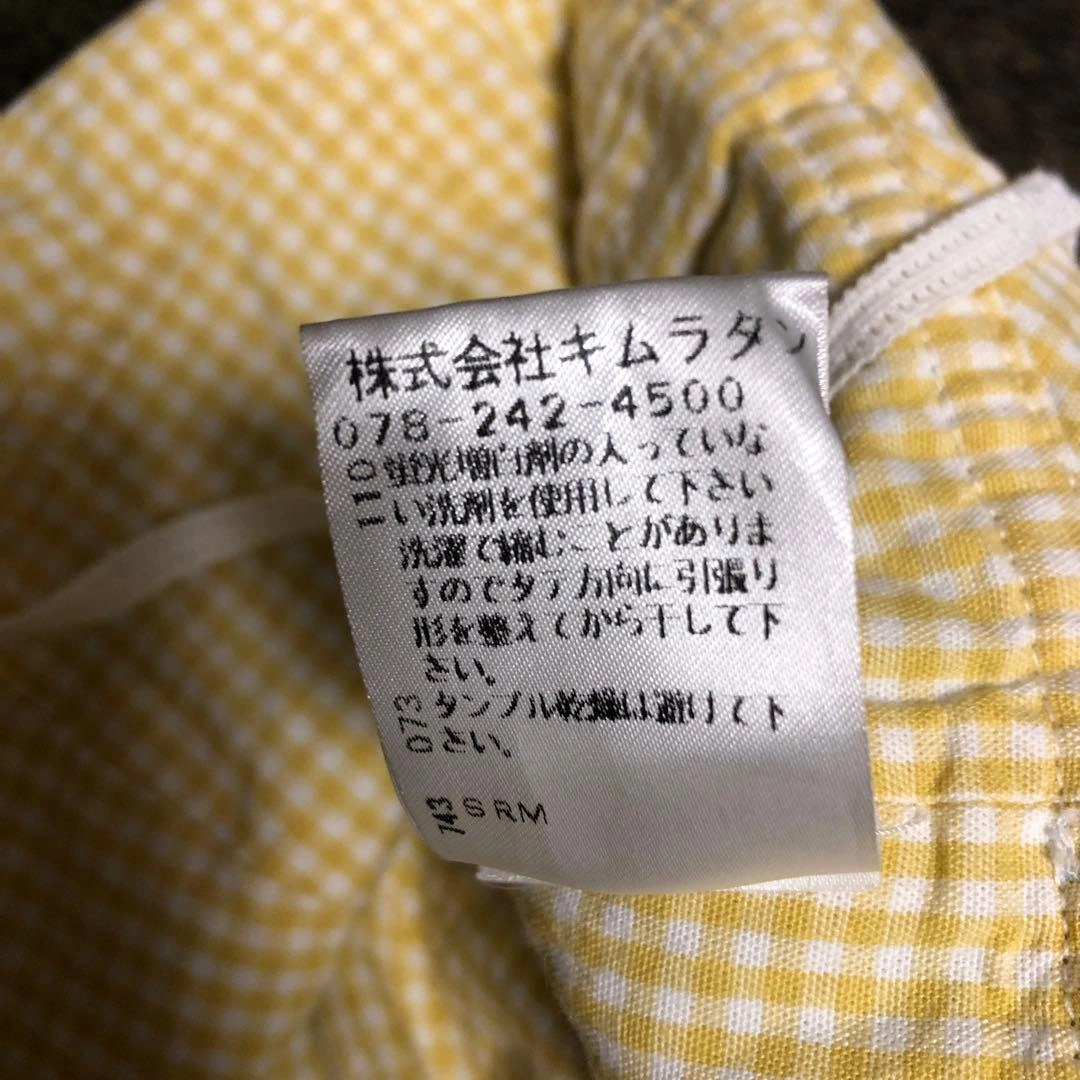 株式会社キムラタン
078-242-4500
110 蛍光増白剤の入っていな
い洗剤を使用して下さい
洗濯で縮むことがありま
すのでタテ方向に引張り
形を整えてから干して下
さい。
073 タンブル乾燥は避けて下
さい。
743 SRM